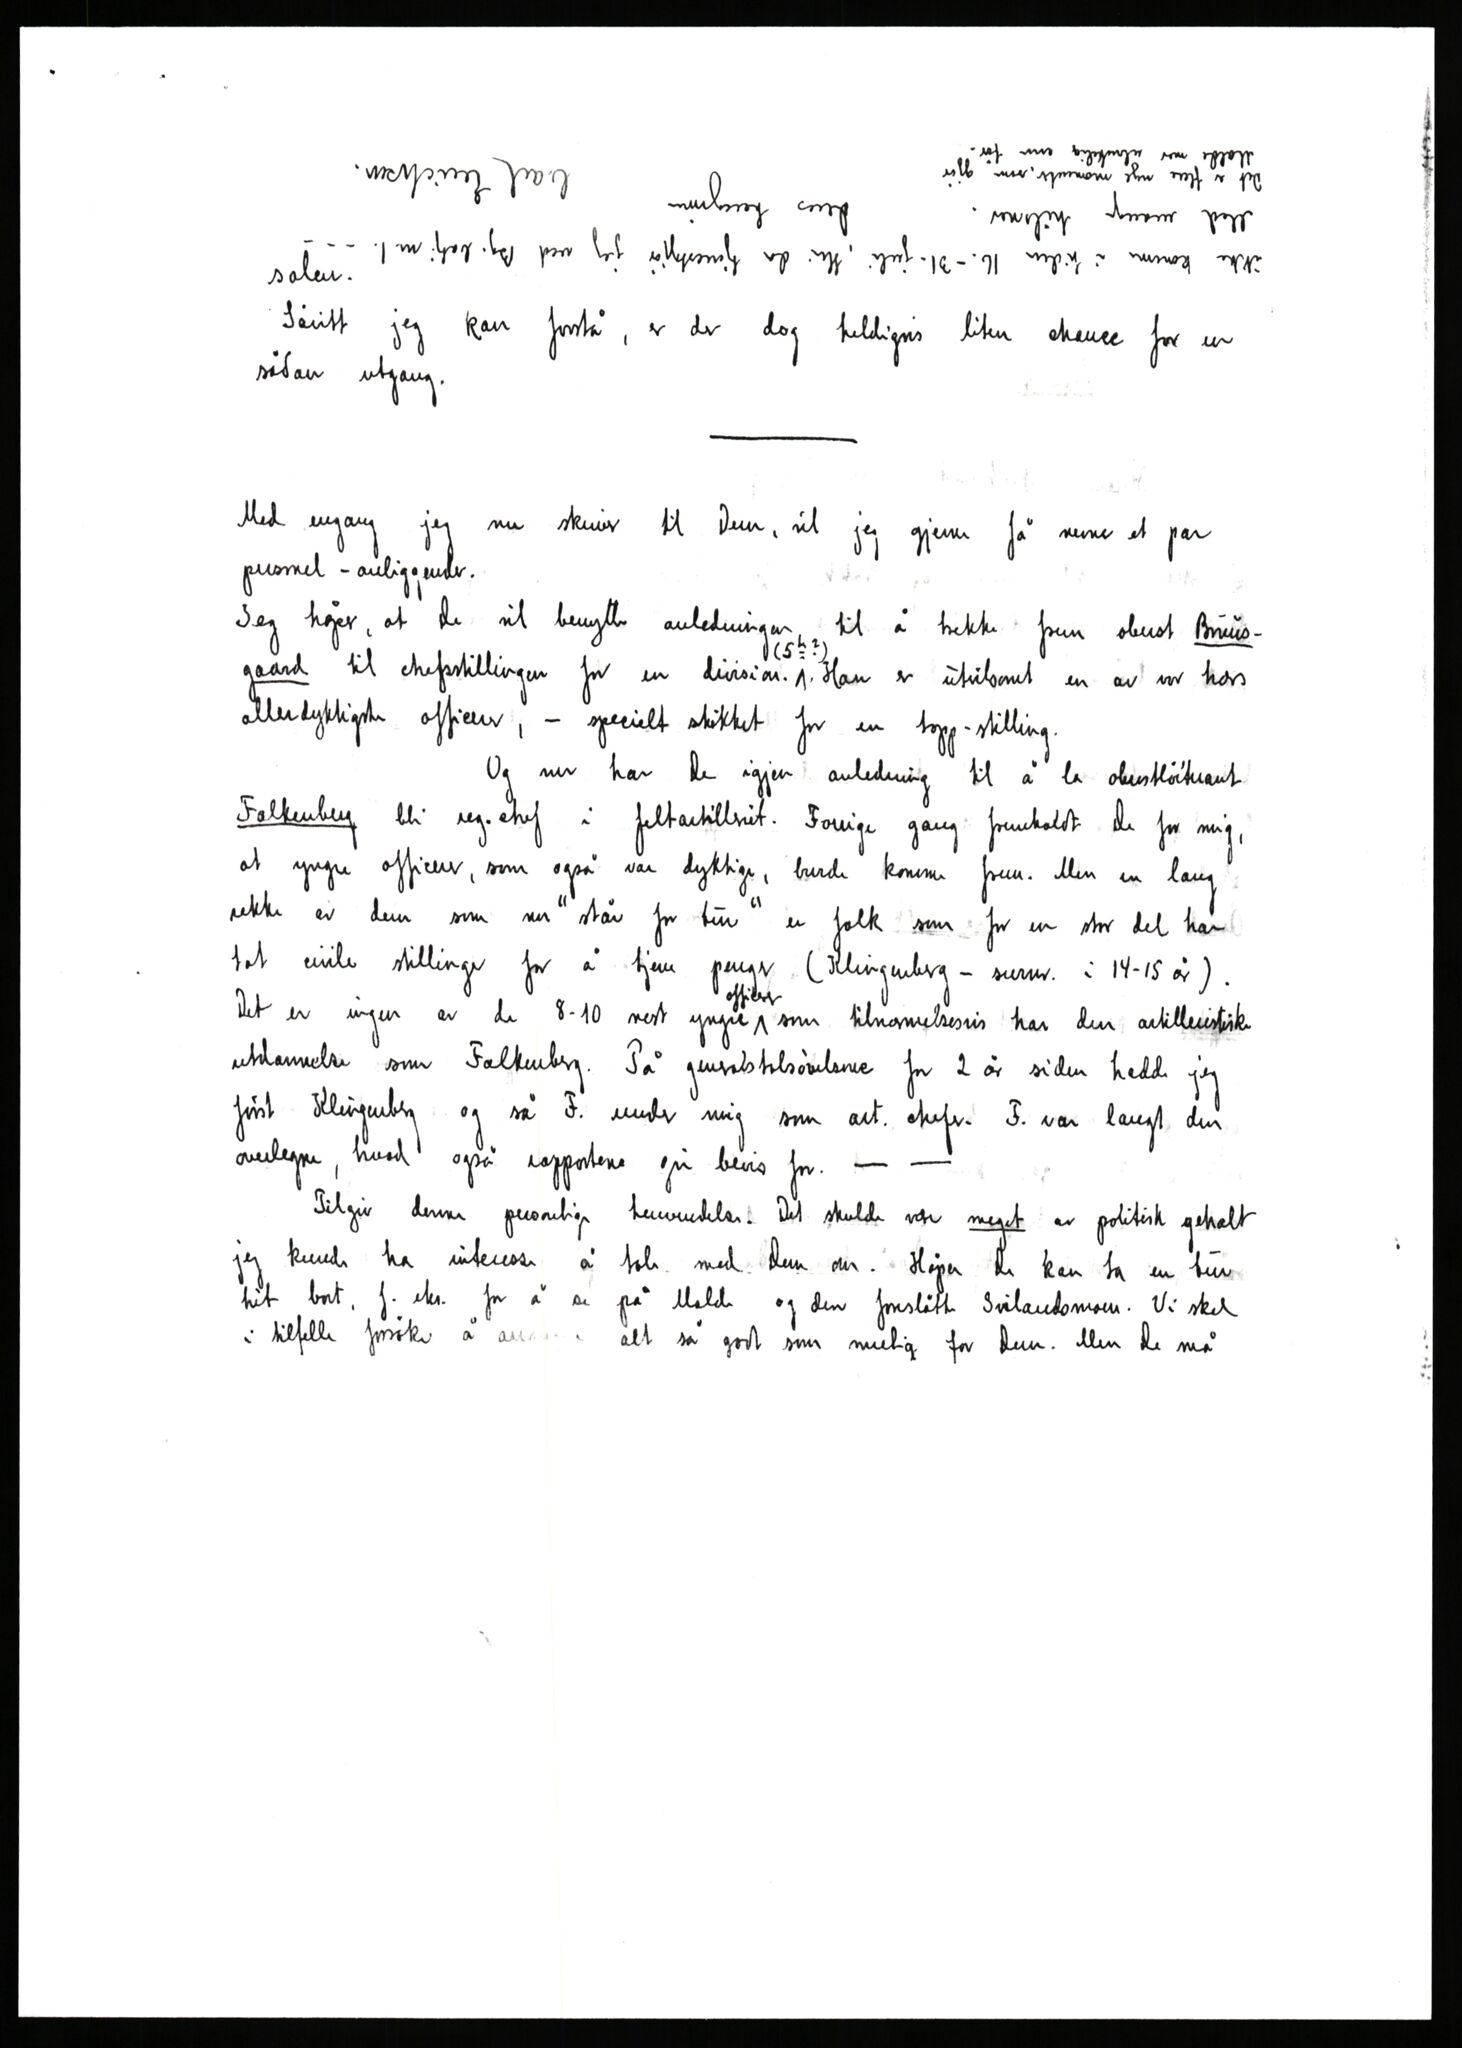 saken.
Såvitt jeg kan forstå, er der dog heldigvis liten chance for en
sådan utgang.
Med engang jeg nu skriver til Dem, vil jeg gjerne få nevne et par
personel-anliggender.
Jeg håper, at De vil benytte anledningen til å trekke frem oberst Bruus-
gaard til chefsstillingen for en division. (5te?) Han er utvilsomt en av vor hærs
allerdyktigste officerer, – specielt skikket for en topp-stilling.
Og nu har De igjen anledning til å la oberstløitnant
Falkenberg bli reg.chef i feltartilleriet. Forrige gang fremholdt De for mig,
at yngre officerer, som også var dyktige, burde komme frem. Men en lang
rekke av dem som nu "står for tur" er folk som for en stor del har
tat civile stillinger for å tjene penger (Klingenberg – i 14-15 år).
Det er ingen av de 8-10 nest yngre officerer som tilnærmelsesvis har den artilleristiske
utdannelse som Falkenberg. På generalstabsøvelsene for 2 år siden hadde jeg
først Klingenberg og så F. under mig som art. chefer. F. var langt den
overlegne, hvad også rapportene gir bevis for. — —
Tilgiv denne personlige henvendelse. Det skulde være meget av politisk gehalt
jeg kunde ha interesse å tale med Dem om. Håper De kan ta en tur
hit bort, f. eks. for å se på Malde og den foreslåtte Svilandsmoen. Vi skal
i tilfelle forsøke å alt så godt som mulig for Dem. Men De må
ikke komme i tiden 16.-31. juli, thi da tjenestgjør jeg ved Bg. batj. nr. 1. – – –
Med mange hilsner.
Deres hengivne
Carl Erichsen.
Det er flere nye momenter, som gjør
Malde mer uheldig enn før.